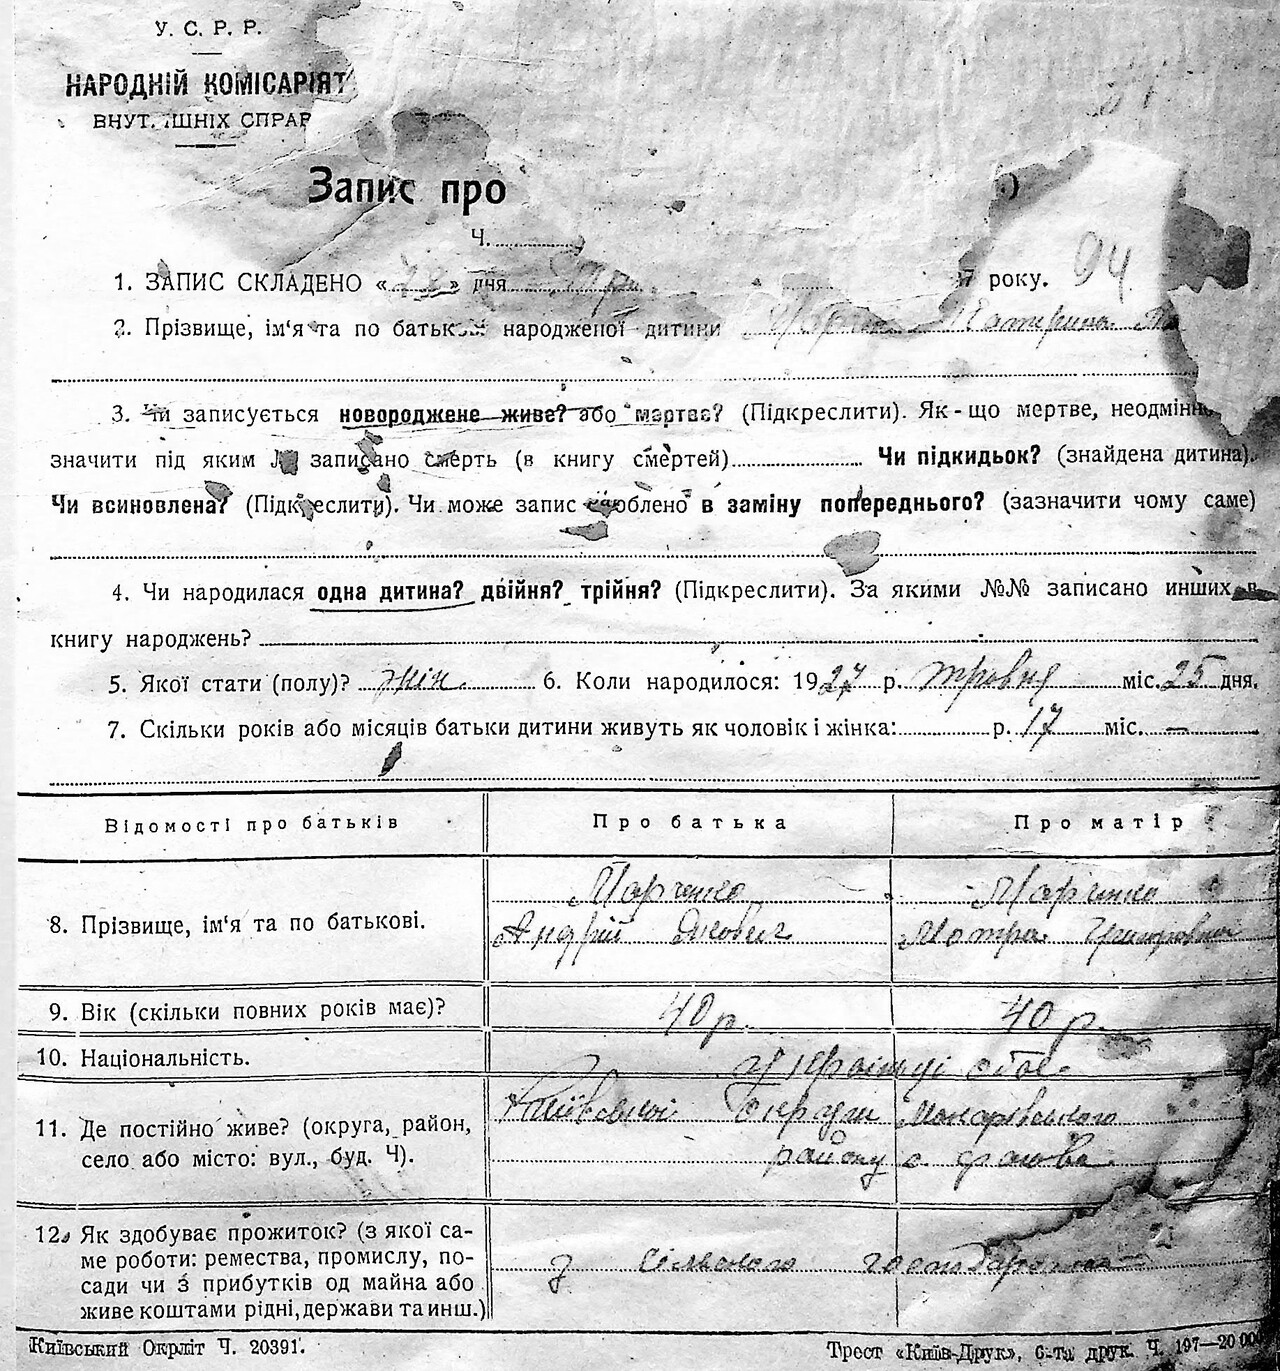 У. С. Р. Р.
НАРОДНІЙ КОМІСАРІЯТ
ВНУТ. ІШНІХ СПРАВ
Запис про
Ч.
1. ЗАПИС СКЛАДЕНО « » дня 7 року. 94
2. Прізвище, ім'я та по батькові народженої дитини Катерина
3. Чи записується новороджене живе? або мертве? (Підкреслити). Як-що мертве, неодмінно
значити під яким № записано смерть (в книгу смертей) Чи підкидьок? (знайдена дитина).
Чи всиновлена? (Підкреслити). Чи може запис зроблено в заміну попереднього? (зазначити чому саме)
4. Чи народилася одна дитина? двійня? трійня? (Підкреслити). За якими №№ записано инших в
книгу народжень?
5. Якої стати (полу)? жін. 6. Коли народилося: 1927 р. травня міс. 25 дня.
7. Скільки років або місяців батьки дитини живуть як чоловік і жінка: р. 17 міс. —
Відомості про батьків Про батька Про матір
8. Прізвище, ім'я та по батькові. Марченко Марченко
Андрій Мотря Григоровна
9. Вік (скільки повних років має)? 40 р. 40 р.
10. Національність. Українці обоє
11. Де постійно живе? (округа, район,
село або місто: вул., буд. Ч). Київської округи Макарівського
району с.
12. Як здобуває прожиток? (з якої са-
ме роботи: ремества, промислу, по-
сади чи з прибутків од майна або
живе коштами рідні, держави та инш.) З сільского господарства
Київський Окрліт Ч. 20391. Трест «Київ-Друк», 6-та друк. Ч. 197—20 000